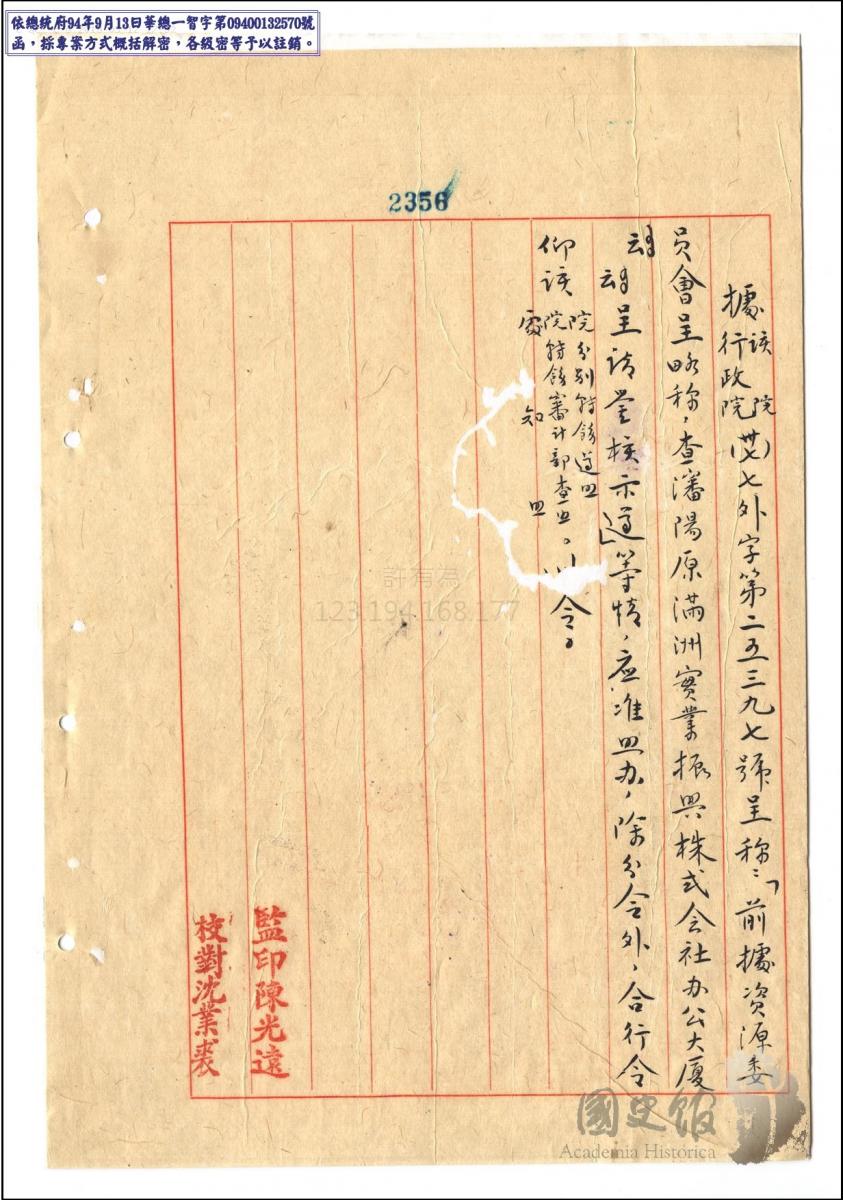 依總統府94年9月13日華總一智字第09400132570號
函,採專案方式概括解密,各級密等予以註銷。
2356
據該院
行政院(卅七)七外字第二五三九七號呈称:「前據资源委
員會呈略称,查瀋陽原滿洲實業振興株式会社办公大厦
呈請鉴核示遵」等情,应准照办,除分令外,合行令
仰该
院分别轉飭遵照
院轉飭審計部查照。
處知照
令。
監印陳光遠
校對沈業裘
許有為
123.194.168.177
國史館
Academia Historica